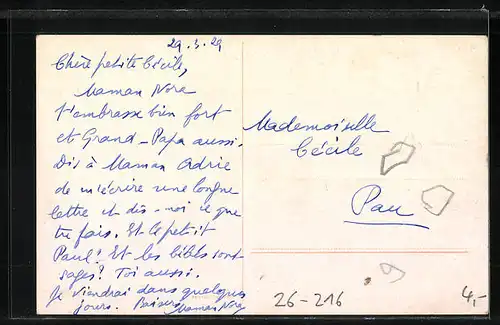 29.3.29
Chère petite Cécile,
Maman Nora
t'embrasse bien fort
et Grand-Papa aussi.
Dis à Maman Adrie
de m'écrire une longue
lettre et dis-moi ce que
tu fais. Et le petit
Paul? Et les bébés sont
sages? Toi aussi.
Je viendrai dans quelques
jours. Baisers Maman Nora
Mademoiselle
Cécile
Pau
26-216
4,-